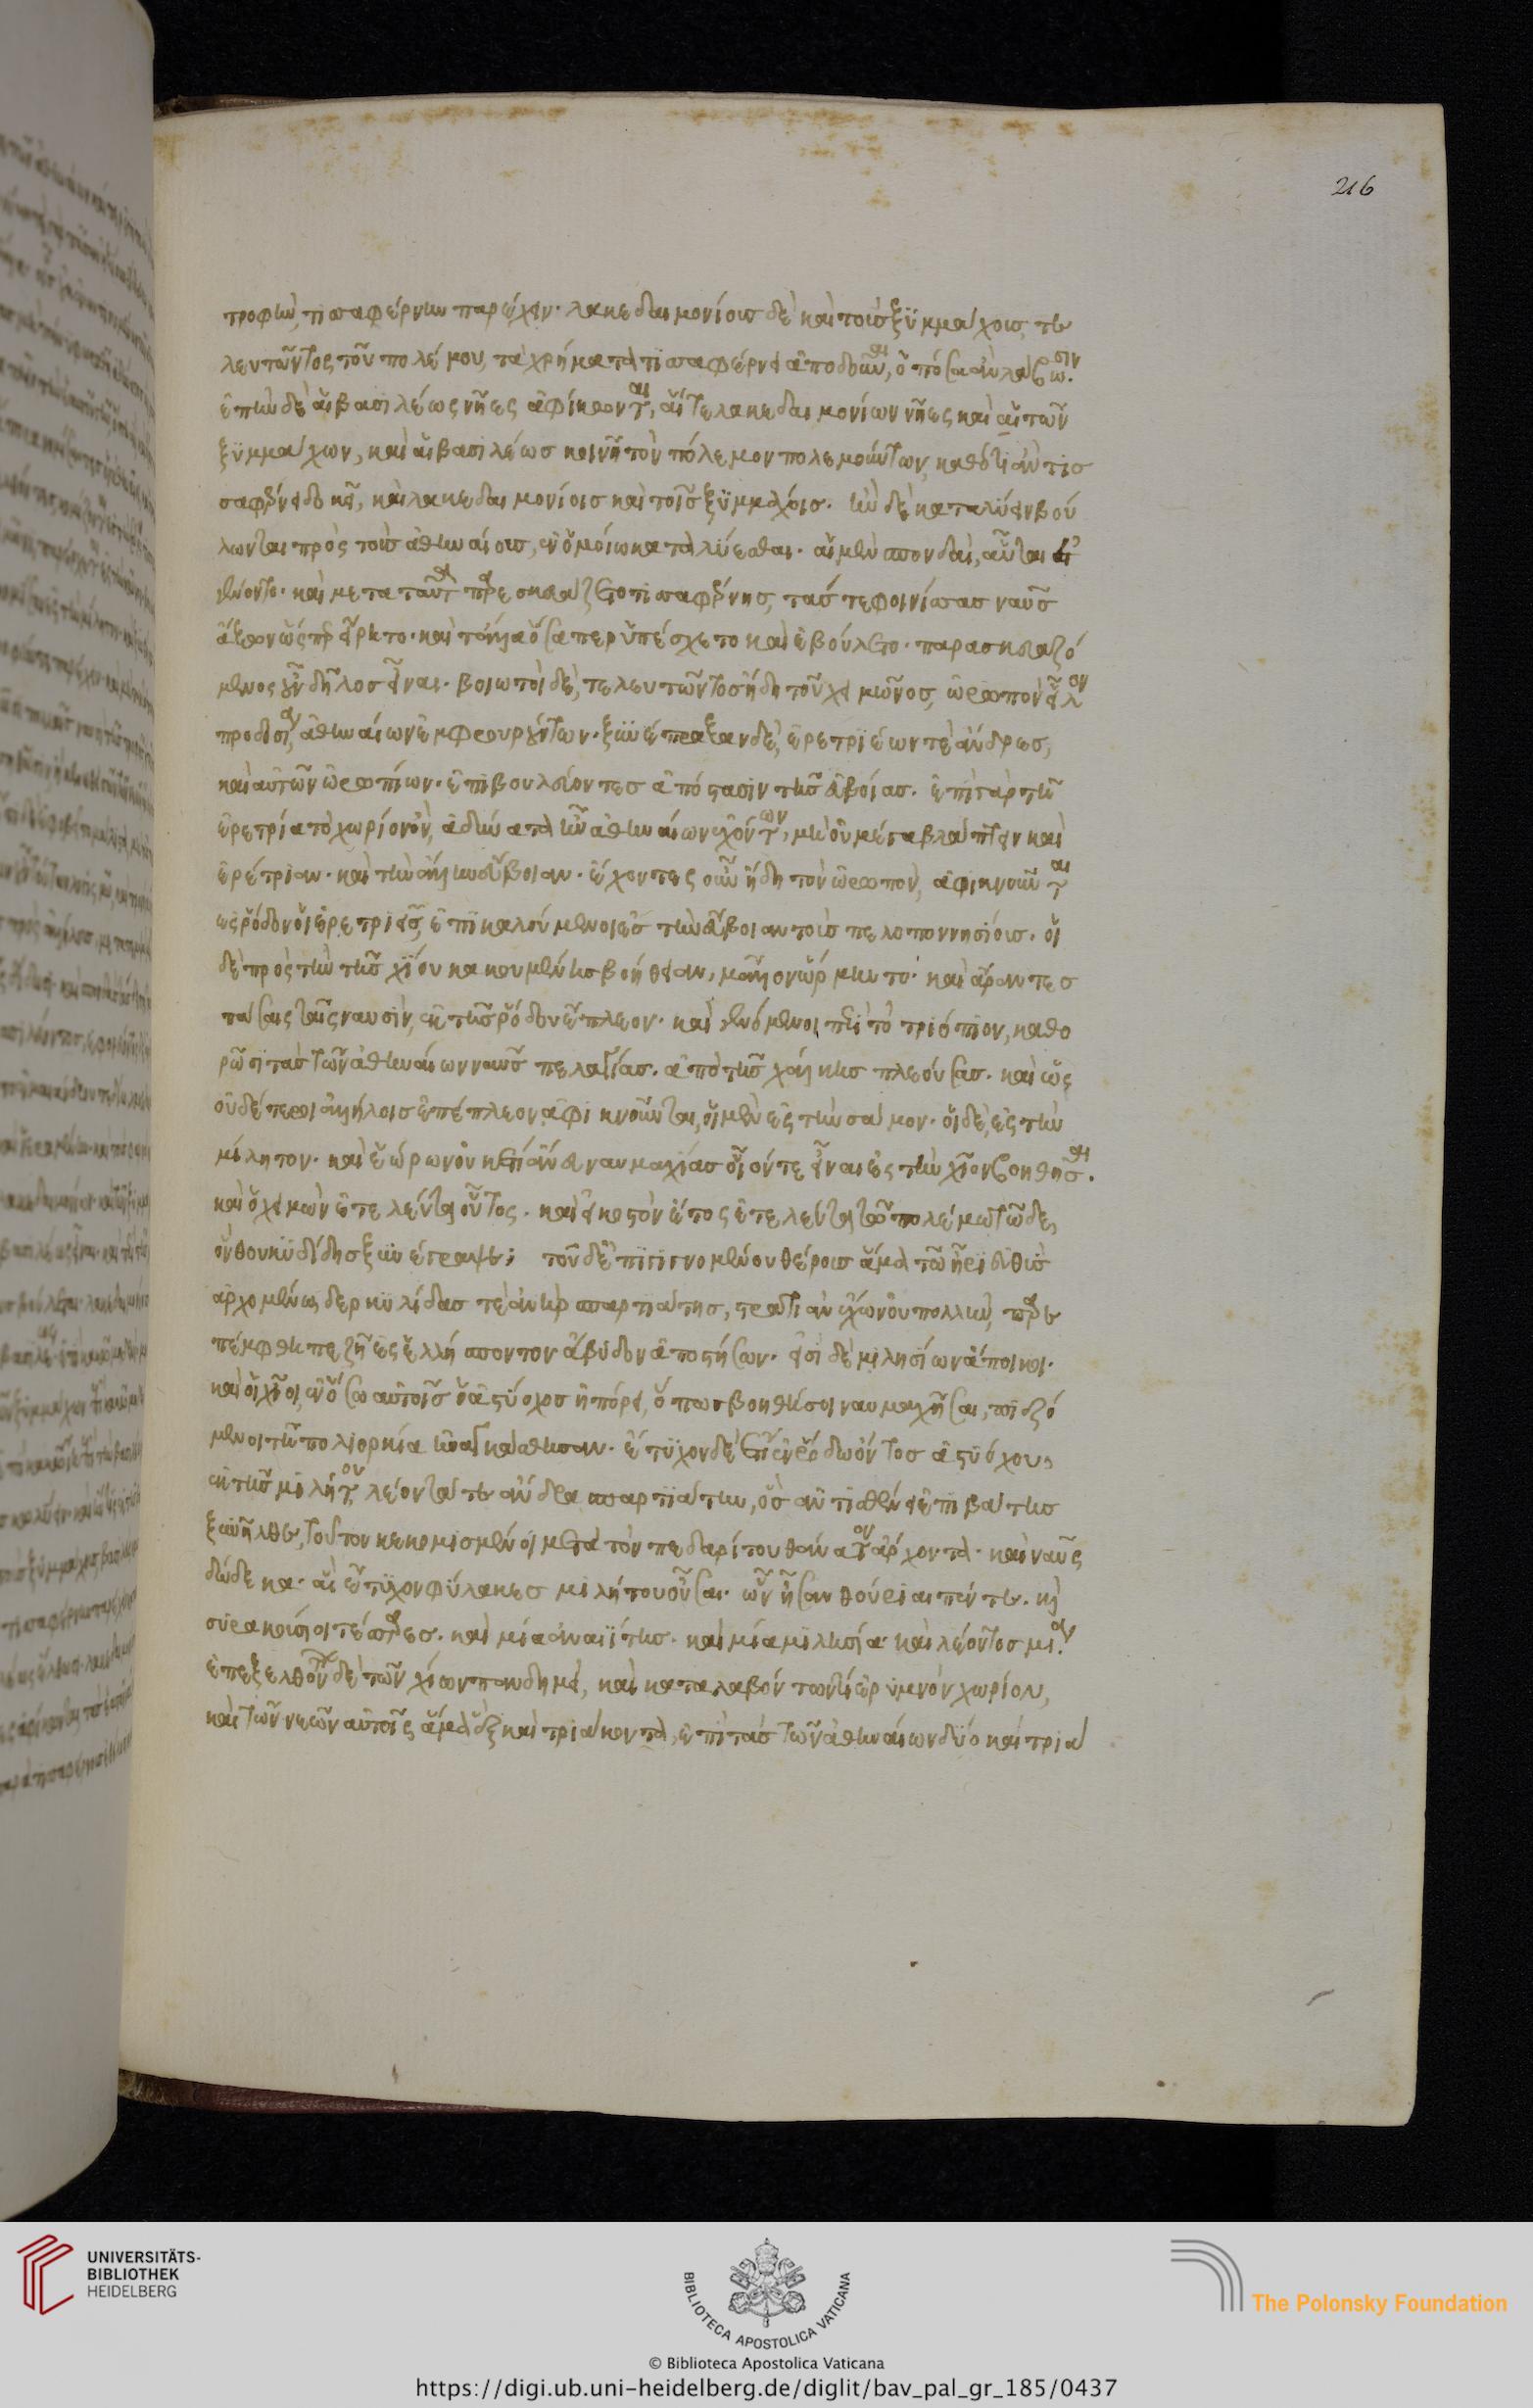 216
τροφὴν τισσαφέρνην παρέχειν· λακεδαιμονίους δὲ καὶ τοὺς ξυμμάχους τε
λευτῶντος τοῦ πολέμου, τὰ χρήματα τισσαφέρνει ἀποδοῦναι, ὁπόσα ἂν λάβωσιν.
ἐπὴν δὲ αἱ βασιλέως νῆες ἀφίκωνται, αἵ τε λακεδαιμονίων νῆες καὶ αἱ τῶν
ξυμμάχων, καὶ αἱ βασιλέως κοινῇ τὸν πόλεμον πολεμούντων, καθότι ἂν τισ
σαφέρνει δοκῇ, καὶ λακεδαιμονίοις καὶ τοῖς ξυμμάχοις. ἢν δὲ καταλύειν βού
λωνται πρὸς τοὺς ἀθηναίους, ἐν ὁμοίω καταλύεσθαι. αἱ μὲν σπονδαὶ, αὗται ἐ
γένοντο. καὶ μετὰ ταῦτα παρεσκευάζετο τισσαφέρνης, τάς τε φοινίσσας ναῦς
ἄξων ὥσπερ εἴρητο· καὶ τἄλλα ὅσα περ ὑπέσχετο καὶ ἐβούλετο παρασκευαζό
μενος γοῦν δῆλος εἶναι. βοιωτοὶ δὲ, τελευτῶντος ἤδη τοῦ χειμῶνος, ὠρωπὸν εἷλον
προδοσίᾳ, ἀθηναίων ἐμφρουρούντων. ξυνέπραξαν δὲ, ἐρετριέων τε ἄνδρες,
καὶ αὐτῶν ὠρωπίων. ἐπιβουλεύοντες ἀπόστασιν τῆς εὐβοίας. ἐπὶ γὰρ τῇ
ἐρετρία τὸ χωρίον ὂν, ἀδύνατα ἦν ἀθηναίων ἐχόντων, μὴ οὐ μέγα βλάπτειν καὶ
ἐρέτριαν. καὶ τὴν ἄλλην εὔβοιαν. ἔχοντες οὖν ἤδη τὸν ὠρωπὸν, ἀφικνοῦνται
ἐς ῥόδον οἱ ἐρετριεῖς, ἐπικαλούμενοι ἐς τὴν εὔβοιαν τοὺς πελοποννησίους. οἱ
δὲ πρὸς τὴν τῆς χίου κακουμένης βοήθειαν, μᾶλλον ὥρμηντο· καὶ ἄραντες
πάσαις ταῖς ναυσὶν, ἐκ τῆς ῥόδου ἔπλεον. καὶ γενόμενοι περὶ τὸ τριόπιον, καθο
ρῶσι τὰς τῶν ἀθηναίων ναῦς πελαγίας. ἀπὸ τῆς χάλκης πλεούσας. καὶ ὡς
οὐδέτεροι ἀλλήλοις ἐπέπλεον ἀφικνοῦνται, οἱ μὲν ἐς τὴν σάμον. οἱ δὲ, ἐς τὴν
μίλητον. καὶ ἑώρων οὐκέτι ἄνευ ναυμαχίας οἷόν τε εἶναι ἐς τὴν χίον βοηθῆσαι.
καὶ ὁ χειμὼν ἐτελεύτα οὗτος. καὶ εἰκοστὸν ἔτος ἐτελεύτα τῷ πολέμω τῶδε,
ὃν θουκυδίδης ξυνέγραψε; τοῦ δ' ἐπιγιγνομένου θέρους ἅμα τῶ ἦρι εὐθὺς
ἀρχομένω δερκυλίδας τὲ ἀνὴρ σπαρτιάτης, στρατιὰν ἔχων οὐ πολλὴν, παρε
πέμφθη πεζῇ ἐς ἑλλήσποντον ἄβυδον ἀποστήσων. εἰσὶ δὲ μιλησίων ἄποικοι.
καὶ οἱ χῖοι, ἐν ὅσω αὐτοῖς ὁ ἀστύοχος ἠπόρει, ὅπως βοηθήσοι ναυμαχῆσαι, πιεζό
μενοι τῇ πολιορκία ἠναγκάσθησαν. ἔτυχον δὲ ἔτι ἐν ῥόδω ὄντος ἀστυόχου,
ἐκ τῆς μιλήτου, λέοντά τε ἄνδρα σπαρτιάτην, ὃς ἀντισθένει ἐπιβάτης
ξυνῆλθε, τοῦτον κεκομισμένοι μετὰ τὸν πεδαρίτου θάνατον ἄρχοντα. καὶ ναῦς
δώδεκα. αἳ ἔτυχον φύλακες μιλήτου οὖσαι. ὧν ἦσαν θούριαι πέντε. καὶ
συρακούσιοι τέσσαρες. καὶ μία ἀναιίτης. καὶ μία μιλησία. καὶ λέοντος μία.
ἐπεξελθόντων δὲ τῶν χίων πανδημεὶ, καὶ καταλαβόντων τι ἐρυμνὸν χωρίον,
καὶ τῶν νεῶν αὐτοῖς ἅμα ἓξ καὶ τριάκοντα, ἐπὶ τὰς τῶν ἀθηναίων δύο καὶ τριά
UNIVERSITÄTS-
BIBLIOTHEK
HEIDELBERG
BIBLIOTECA APOSTOLICA VATICANA
The Polonsky Foundation
© Biblioteca Apostolica Vaticana
https://digi.ub.uni-heidelberg.de/diglit/bav_pal_gr_185/0437